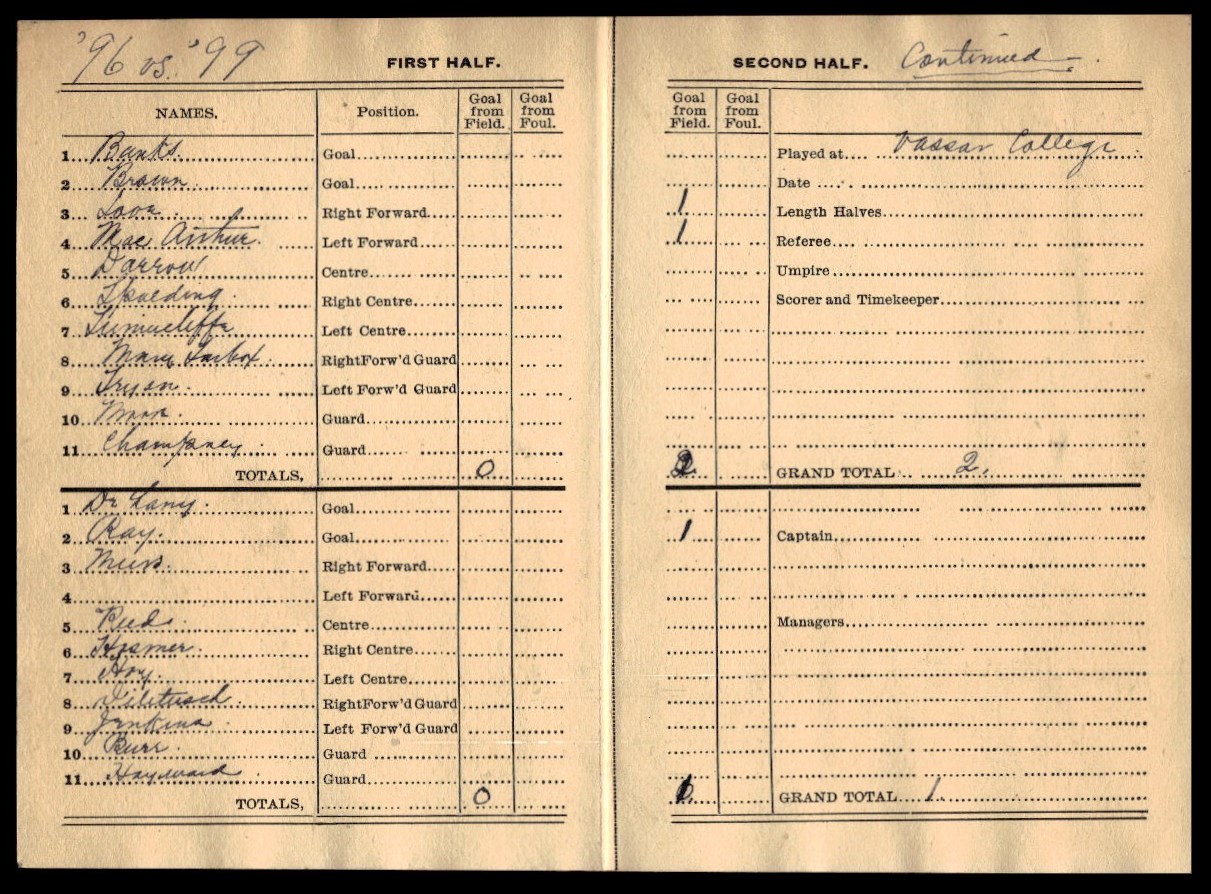 '96 vs. '99 FIRST HALF.
NAMES. Position. Goal from Field. Goal from Foul.
1 Banks. Goal
2 Brown. Goal
3 Right Forward
4 Mac Arthur. Left Forward
5 Darrow Centre
6 Spalding. Right Centre
7 Left Centre
8 Mary Tarbox. Right Forw'd Guard
9 Tryon. Left Forw'd Guard
10 Guard
11 Champney. Guard
TOTALS, 0
1 De Lany. Goal
2 Ray. Goal
3 Right Forward
4 Left Forward
5 Reed. Centre
6 Right Centre
7 Left Centre
8 Right Forw'd Guard
9 Jenkins. Left Forw'd Guard
10 Burr. Guard
11 Hayward. Guard
TOTALS, 0
SECOND HALF. Continued
Goal from Field. Goal from Foul.
Played at Vassar College
Date
1 Length Halves
1 Referee
Umpire
Scorer and Timekeeper
2 GRAND TOTAL 2.
1 Captain
Managers
1 GRAND TOTAL 1.